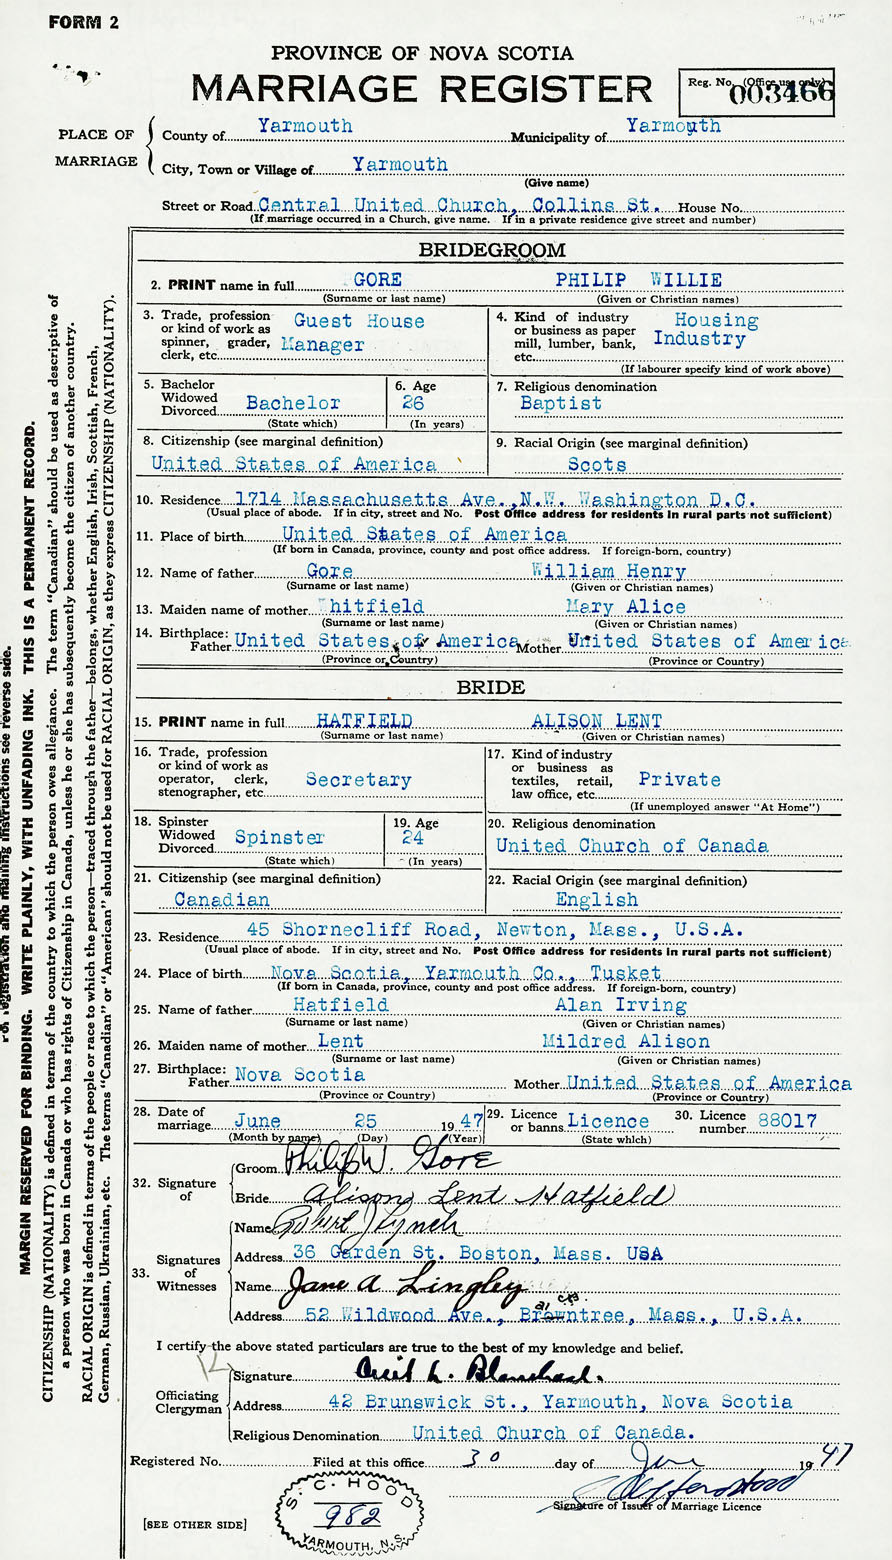 FORM 2
PROVINCE OF NOVA SCOTIA
MARRIAGE REGISTER
Reg. No. (Office use only)
003466
PLACE OF MARRIAGE
County of Yarmouth Municipality of Yarmouth
City, Town or Village of Yarmouth
(Give name)
Street or Road Central United Church, Collins St. House No.
(If marriage occurred in a Church, give name. If in a private residence give street and number)
BRIDEGROOM
2. PRINT name in full GORE PHILIP WILLIE
(Surname or last name) (Given or Christian names)
3. Trade, profession or kind of work as spinner, grader, clerk, etc. Guest House Manager
4. Kind of industry or business as paper mill, lumber, bank, etc. Housing Industry
(If labourer specify kind of work above)
5. Bachelor Widowed Divorced Bachelor
(State which)
6. Age 26
(In years)
7. Religious denomination
Baptist
8. Citizenship (see marginal definition)
United States of America
9. Racial Origin (see marginal definition)
Scots
10. Residence 1714 Massachusetts Ave.,N.W. Washington D.C.
(Usual place of abode. If in city, street and No. Post Office address for residents in rural parts not sufficient)
11. Place of birth United States of America
(If born in Canada, province, county and post office address. If foreign-born, country)
12. Name of father Gore William Henry
(Surname or last name) (Given or Christian names)
13. Maiden name of mother Whitfield Mary Alice
(Surname or last name) (Given or Christian names)
14. Birthplace: Father United States of America Mother United States of America
(Province or Country) (Province or Country)
BRIDE
15. PRINT name in full HATFIELD ALISON LENT
(Surname or last name) (Given or Christian names)
16. Trade, profession or kind of work as operator, clerk, stenographer, etc. Secretary
17. Kind of industry or business as textiles, retail, law office, etc. Private
(If unemployed answer "At Home")
18. Spinster Widowed Divorced Spinster
(State which)
19. Age 24
(In years)
20. Religious denomination
United Church of Canada
21. Citizenship (see marginal definition)
Canadian
22. Racial Origin (see marginal definition)
English
23. Residence 45 Shornecliff Road, Newton, Mass., U.S.A.
(Usual place of abode. If in city, street and No. Post Office address for residents in rural parts not sufficient)
24. Place of birth Nova Scotia, Yarmouth Co., Tusket
(If born in Canada, province, county and post office address. If foreign-born, country)
25. Name of father Hatfield Alan Irving
(Surname or last name) (Given or Christian names)
26. Maiden name of mother Lent Mildred Alison
(Surname or last name) (Given or Christian names)
27. Birthplace: Father Nova Scotia Mother United States of America
(Province or Country) (Province or Country)
28. Date of marriage June 25 1947
(Month by name) (Day) (Year)
29. Licence or banns Licence
(State which)
30. Licence number 88017
32. Signature of
Groom Philip W. Gore
Bride Alison Lent Hatfield
33. Signatures of Witnesses
Name Robert J Lynch
Address 36 Garden St. Boston, Mass. USA
Name Jane A Lingley
Address 52 Wildwood Ave., Browntree, Mass., U.S.A.
I certify the above stated particulars are true to the best of my knowledge and belief.
Officiating Clergyman
Signature Cecil L. Blanchard.
Address 42 Brunswick St., Yarmouth, Nova Scotia
Religious Denomination United Church of Canada.
Registered No. Filed at this office 30 day of June 1947
Signature of Issuer of Marriage Licence
[SEE OTHER SIDE]
S. C. HOOD
982
YARMOUTH, N.S.
For registration and mailing instructions see reverse side.
MARGIN RESERVED FOR BINDING. WRITE PLAINLY, WITH UNFADING INK. THIS IS A PERMANENT RECORD.
CITIZENSHIP (NATIONALITY) is defined in terms of the country to which the person owes allegiance. The term "Canadian" should be used as descriptive of
a person who was born in Canada or who has rights of Citizenship in Canada, unless he or she has subsequently become the citizen of another country.
RACIAL ORIGIN is defined in terms of the people or race to which the person—traced through the father—belongs, whether English, Irish, Scottish, French,
German, Russian, Ukrainian, etc. The terms "Canadian" or "American" should not be used for RACIAL ORIGIN, as they express CITIZENSHIP (NATIONALITY).